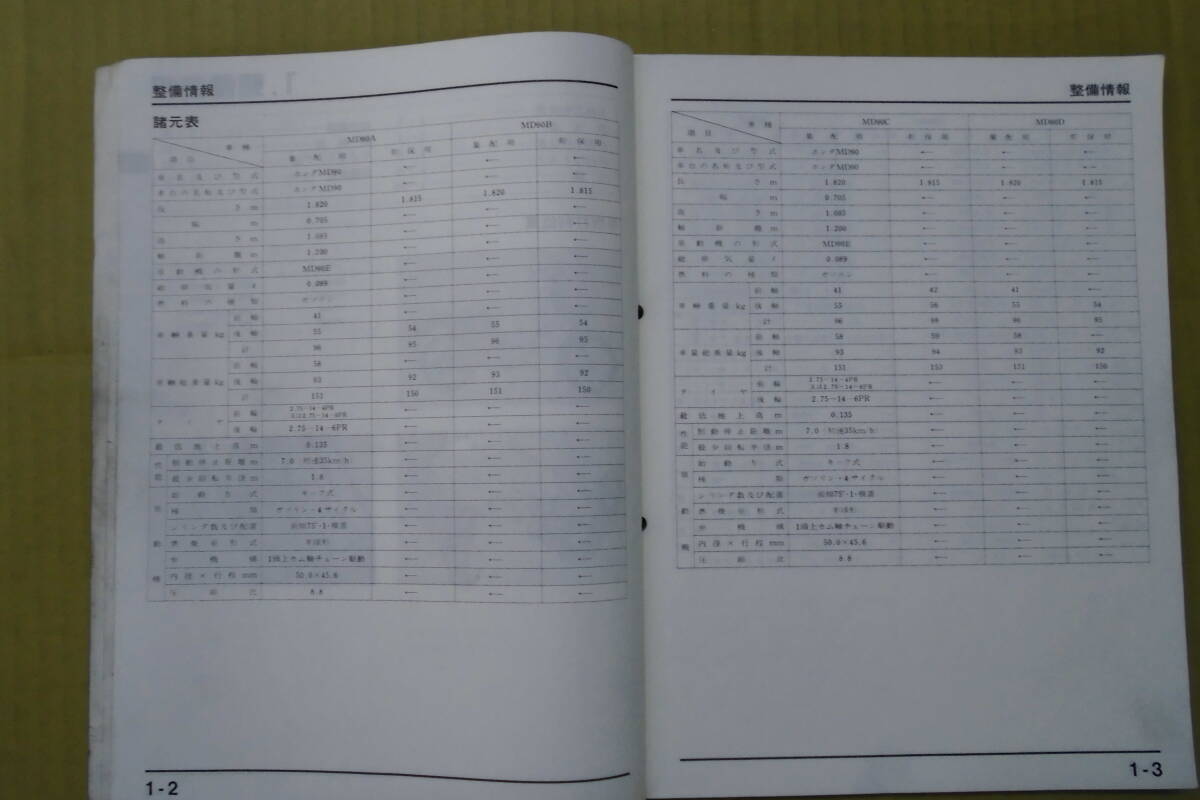 整備情報
諸元表
車種 MD90A MD90B
項目 集配用 和保用 集配用 和保用
車名及び型式 ホンダMD90 ← ← ←
車台の名称及び型式 ホンダMD90 ← ← ←
長さm 1.820 1.815 1.820 1.815
幅m 0.705 ← ← ←
高さm 1.085 ← ← ←
軸距離m 1.200 ← ← ←
原動機の形式 MD90E ← ← ←
総排気量ℓ 0.089 ← ← ←
燃料の種類 ガソリン ← ← ←
車輌重量kg 前輪 41 ← ← ←
後輪 55 54 55 54
計 96 95 96 95
車輌総重量kg 前輪 58 ← ← ←
後輪 93 92 93 92
計 151 150 151 150
タイヤ 前輪 2.75-14-4PR 又は2.75-14-6PR ← ← ←
後輪 2.75-14 6PR ← ← ←
最低地上高m 0.135 ← ← ←
性能 制動停止距離m 7.0(初速35km/h) ← ← ←
最少回転半径m 1.8 ← ← ←
原動機 始動方式 キック式 ← ← ←
種類 ガソリン・4サイクル ← ← ←
シリンダ数及び配置 前傾75°・1・横置 ← ← ←
燃焼室形式 半球形 ← ← ←
弁機構 1頭上カム軸チェーン駆動 ← ← ←
内径×行程mm 50.0×45.6 ← ← ←
圧縮比 8.8 ← ← ←
1-2
整備情報
車種 MD90C MD90D
項目 集配用 和保用 集配用 和保用
車名及び型式 ホンダMD90 ← ← ←
車台の名称及び型式 ホンダMD90 ← ← ←
長さm 1.820 1.815 1.820 1.815
幅m 0.705 ← ← ←
高さm 1.085 ← ← ←
軸距離m 1.200 ← ← ←
原動機の形式 MD90E ← ← ←
総排気量ℓ 0.089 ← ← ←
燃料の種類 ガソリン ← ← ←
車輌重量kg 前輪 41 42 41 ←
後輪 55 56 55 54
計 96 98 96 95
車輌総重量kg 前輪 58 59 58 ←
後輪 93 94 93 92
計 151 153 151 150
タイヤ 前輪 2.75-14-4PR 又は2.75-14-6PR ← ← ←
後輪 2.75-14 6PR ← ← ←
最低地上高m 0.135 ← ← ←
性能 制動停止距離m 7.0(初速35km/h) ← ← ←
最少回転半径m 1.8 ← ← ←
原動機 始動方式 キック式 ← ← ←
種類 ガソリン・4サイクル ← ← ←
シリンダ数及び配置 前傾75°・1・横置 ← ← ←
燃焼室形式 半球形 ← ← ←
弁機構 1頭上カム軸チェーン駆動 ← ← ←
内径×行程mm 50.0×45.6 ← ← ←
圧縮比 8.8 ← ← ←
1-3